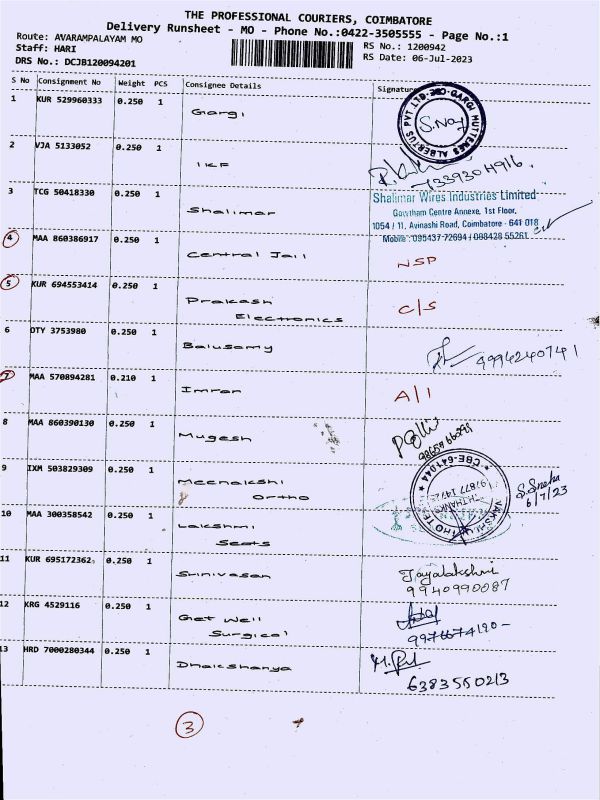 THE PROFESSIONAL COURIERS, COIMBATORE
Delivery Runsheet - MO - Phone No.:0422-3505555 - Page No.:1
Route: AVARAMPALAYAM MO
RS No.: 1200942
Staff: HARI
RS Date: 06-Jul-2023
DRS No.: DCJB120094201
S No Consignment No Weight PCS Consignee Details Signature
1 KUR 529960333 0.250 1 Gargi
S.Nay
2 VJA 5133052 0.250 1 IKF
3 TCG 50418330 0.250 1 Shalimar
Shalimar Wires Industries Limited
Gowtham Centre Annexe, 1st Floor,
1054 / 11, Avinashi Road, Coimbatore - 641 018
Mobile : 095437 72694 / 088428 55261
4 MAA 860386917 0.250 1 Central Jail NSP
5 KUR 694553414 0.250 1 Prakash
Electronics C/S
6 OTY 3753980 0.250 1 Balusamy 9994240741
7 MAA 570894281 0.210 1 Imran A/I
8 MAA 860390130 0.250 1 Mugesh
9 IXM 503829309 0.250 1 Meenakshi
Ortho
CBE-641044
S.Sneha
6/7/23
10 MAA 300358542 0.250 1 Lakshmi
Seats
11 KUR 695172362 0.250 1 Srinivasan Jayalakshmi
9940990087
12 KRG 4529116 0.250 1 Get Well
Surgical
13 HRD 7000280344 0.250 1 Dhakshanya
6383550213
3